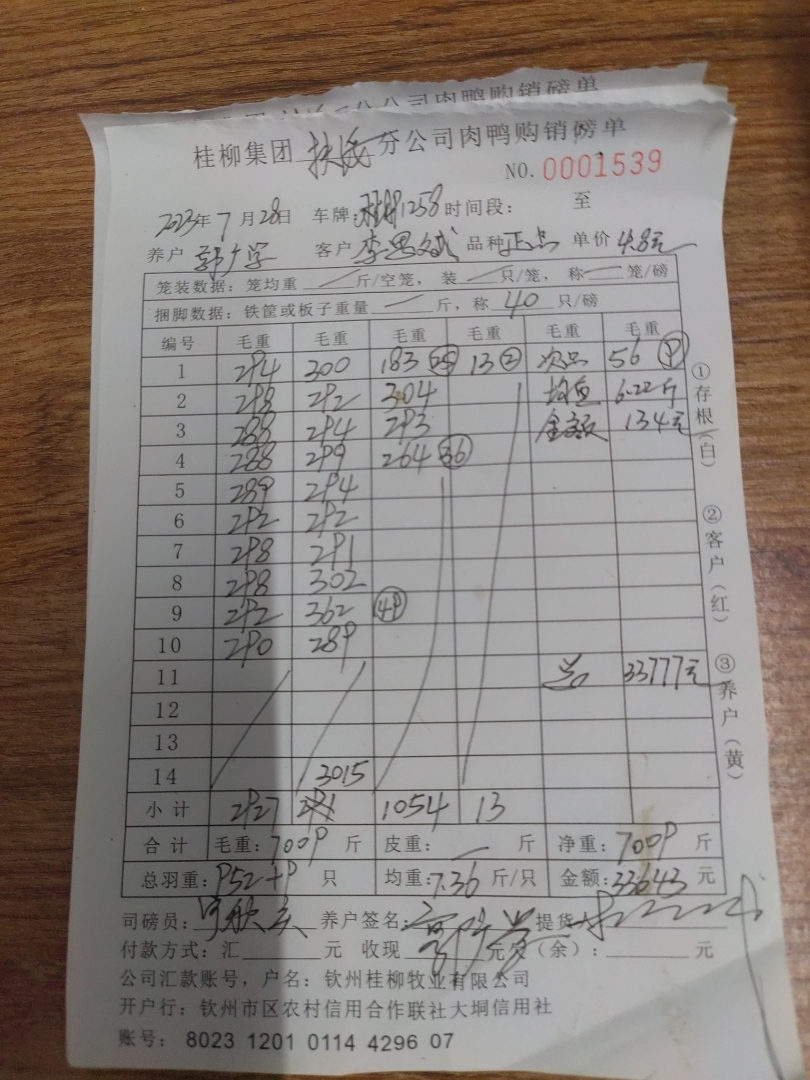 桂柳集团 扶绥 分公司肉鸭购销磅单
NO. 0001539
2023年 7 月 28日 车牌: 1258 时间段: 至
养户 郭广学 客户 李思斌 品种 正品 单价 4.8元
笼装数据: 笼均重 斤/空笼, 装 只/笼, 称 笼/磅
捆脚数据: 铁筐或板子重量 斤, 称 40 只/磅
编号 毛重 毛重 毛重 毛重 毛重 毛重
1 294 300 183 25 13 2 次品 56 9
2 298 292 304 均重 6.22斤
3 288 294 293 金额 134元
4 288 299 264 36
5 289 294
6 292 292
7 298 291
8 298 302
9 292 362 49
10 290 289
11 总 33777元
12
13
14 3015
小计 2927 1054 13
合计 毛重: 7009 斤 皮重: 斤 净重: 7009 斤
总羽重: 952+9 只 均重: 7.36 斤/只 金额: 33643 元
司磅员: 养户签名: 提货人
付款方式: 汇 元 收现 元 欠(余): 元
公司汇款账号, 户名: 钦州桂柳牧业有限公司
开户行: 钦州市区农村信用合作联社大垌信用社
账号: 8023 1201 0114 4296 07
①存根(白)
②客户(红)
③养户(黄)
分公司肉鸭购销磅单